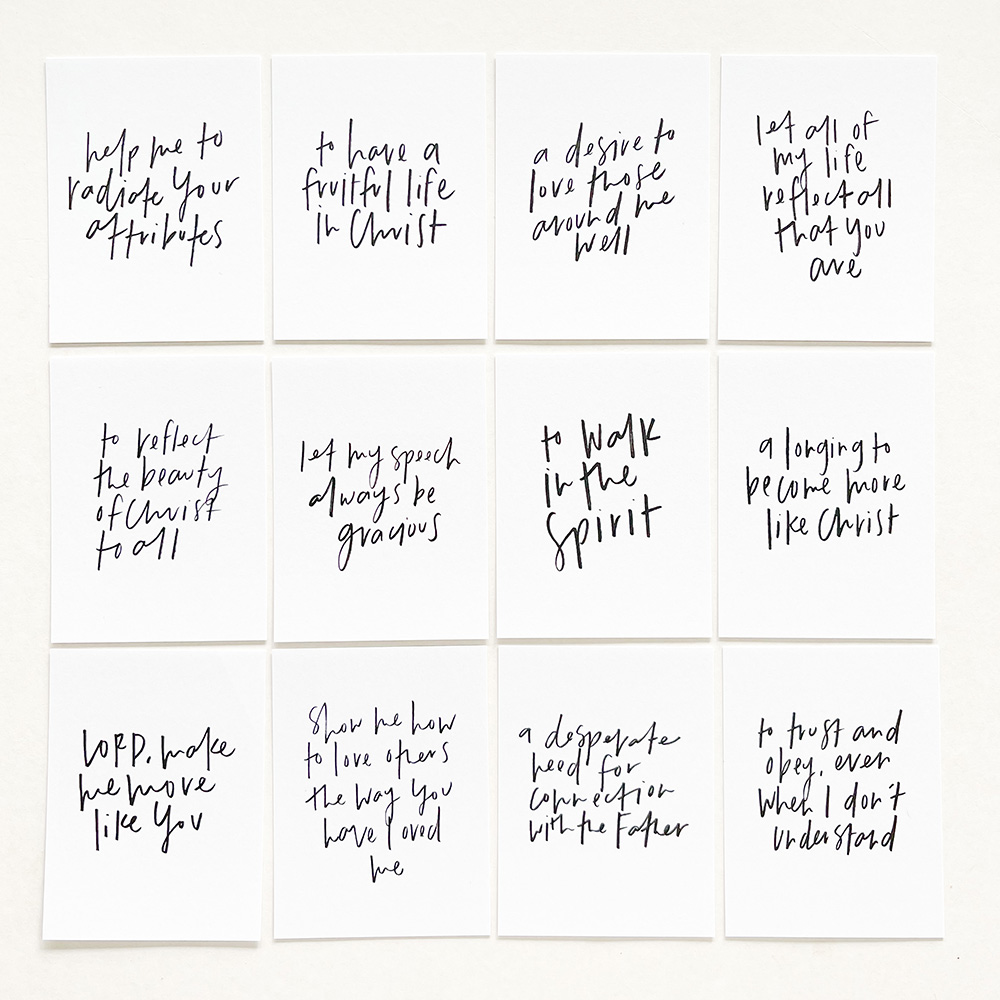 help me to
radiate Your
attributes
to have a
fruitful life
in Christ
a desire to
love those
around me
well
let all of
my life
reflect all
that you
are
to reflect
the beauty
of Christ
to all
let my speech
always be
gracious
to walk
in the
Spirit
a longing to
become more
like Christ
LORD, make
me more
like You
Show me how
to love others
the way You
have loved
me
a desperate
need for
connection
with the Father
to trust and
obey, even
when I don't
understand